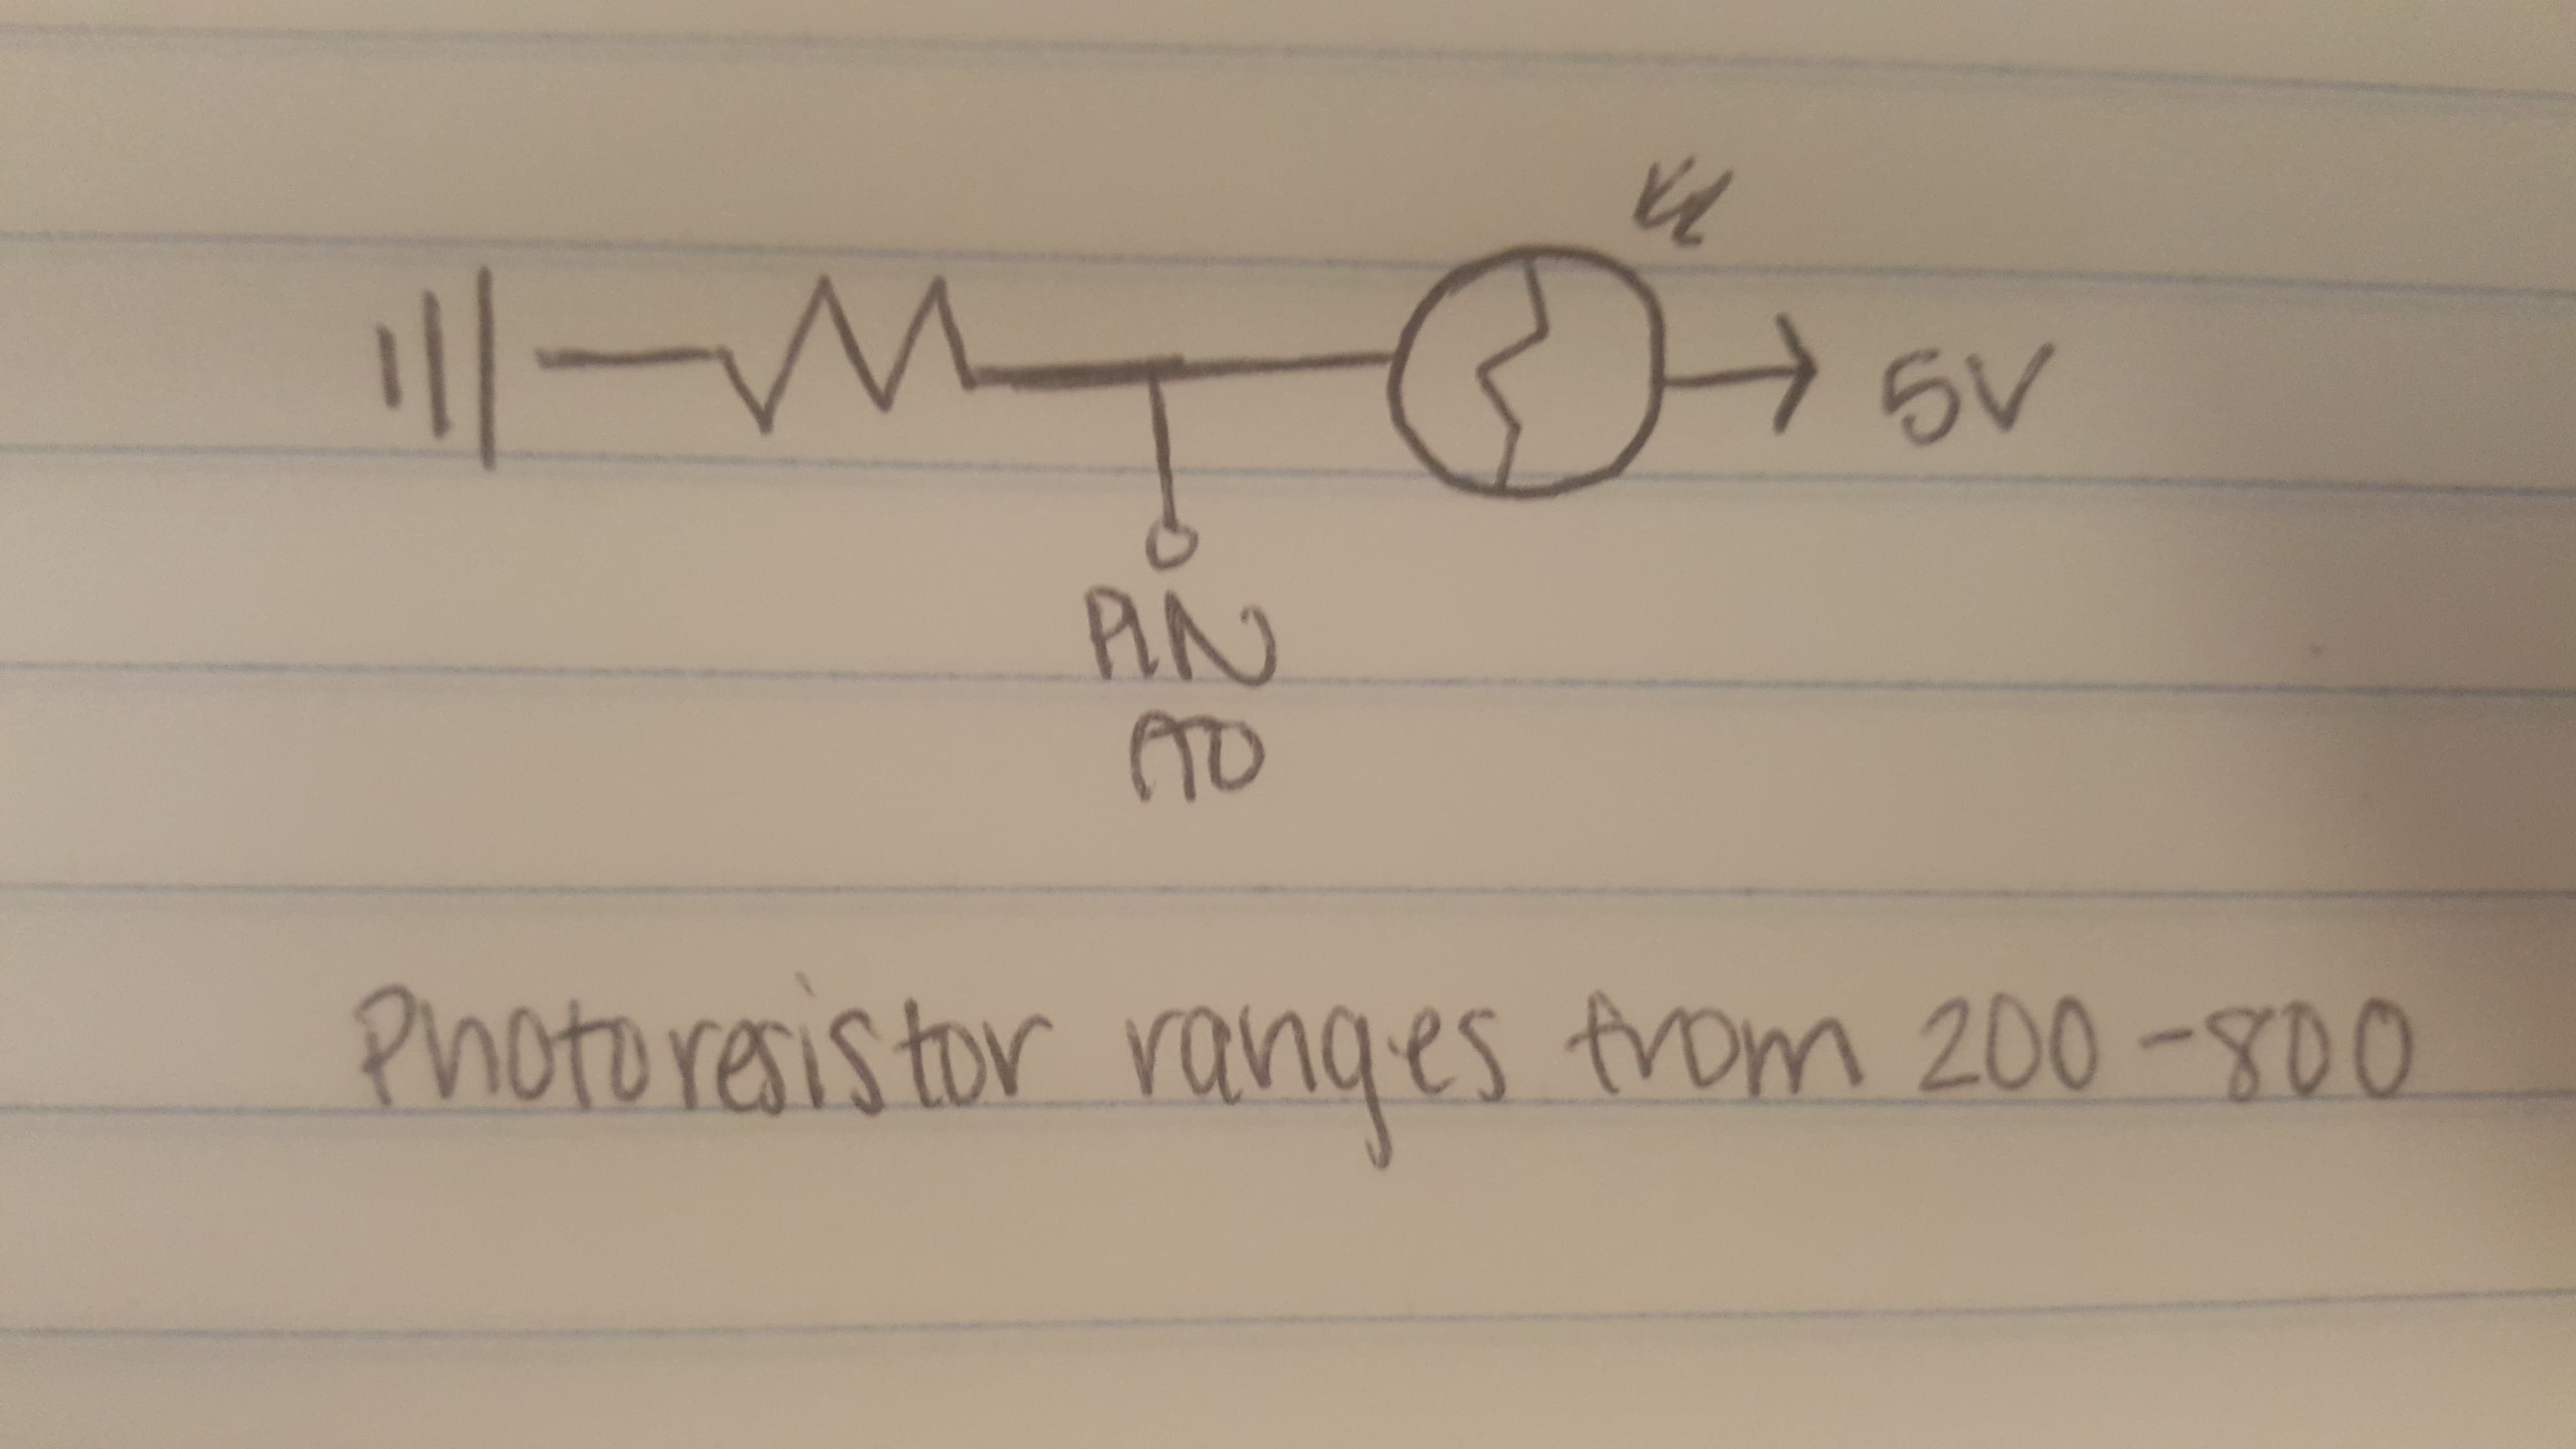 5V
PIN
A0
Photoresistor ranges from 200-800